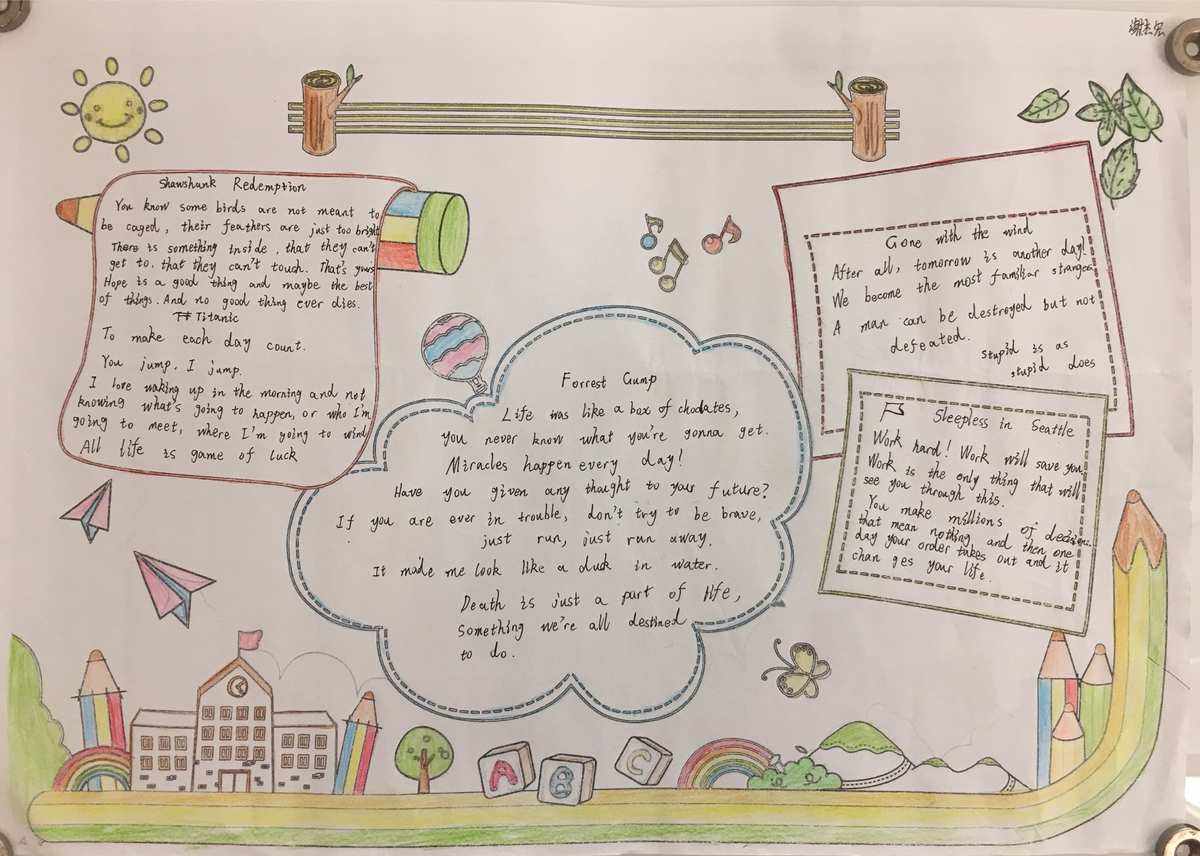 谢杰宏
Shawshunk Redemption
You know some birds are not meant to
be caged, their feathers are just too bright
There is something inside, that they can't
get to, that they can't touch. That's yours
Hope is a good thing and maybe the best
of things. And no good thing ever dies.
Titanic
To make each day count.
You jump. I jump.
I love waking up in the morning and not
knowing what's going to happen, or who I'm
going to meet, where I'm going to wind
All life is game of luck
Forrest Gump
Life was like a box of chodates,
you never know what you're gonna get.
Miracles happen every day!
Have you given any thought to your future?
If you are ever in trouble, don't try to be brave,
just run, just run away.
It made me look like a duck in water.
Death is just a part of life,
something we're all destined
to do.
Gone with the wind
After all, tomorrow is another day!
We become the most familiar stranger
A man can be destroyed but not
defeated.
stupid is as
stupid does
Sleepless in Seattle
Work hard! Work will save you.
Work is the only thing that will
see you through this.
You make millions of decisions
that mean nothing and then one
day your order takes out and it
chan ges your life.
A B C